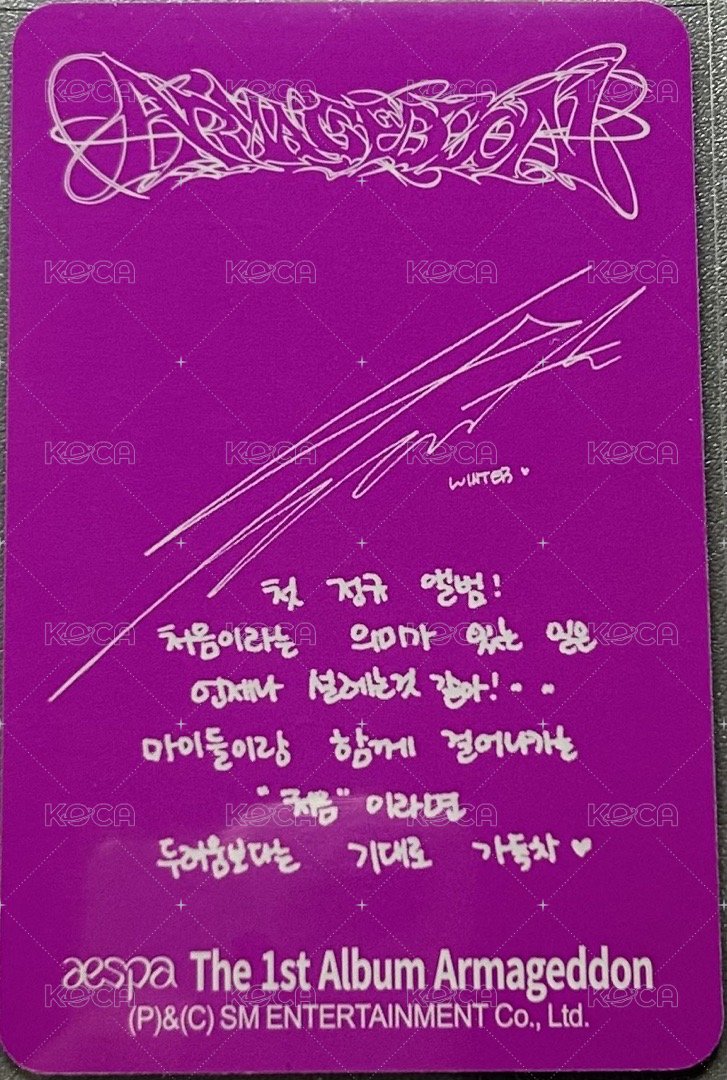 ARMAGEDDON
WINTER ♥
첫 정규 앨범!
처음이라는 의미가 있는 일은
언제나 설레는것 같아!..
마이들이랑 함께 걸어나가는
"처음" 이라면
두려움보다는 기대로 가득차 ♥
aespa The 1st Album Armageddon
(P)&(C) SM ENTERTAINMENT Co., Ltd.
KOCA